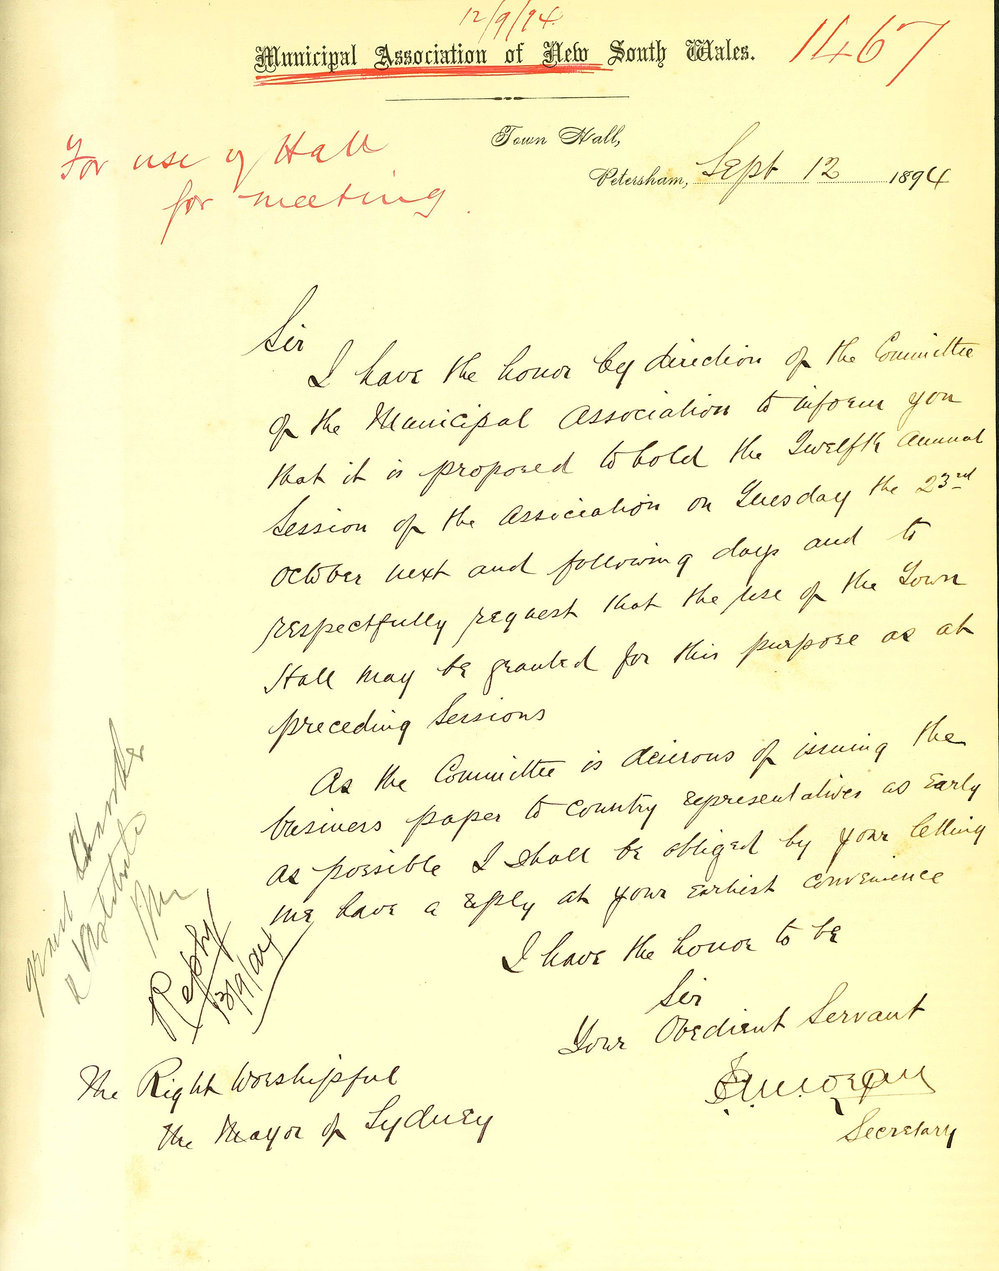 12/9/94
Municipal Association of New South Wales.
1467
Town Hall,
Petersham, Sept 12 1894
For use of Hall
for meeting
Sir
I have the honor by direction of the Committee
of the Municipal Association to inform you
that it is proposed to hold the Twelfth Annual
Session of the Association on Tuesday the 23rd
October next and following days and to
respectfully request that the use of the Town
Hall may be granted for this purpose as at
preceding Sessions
As the Committee is desirous of issuing the
business paper to country representatives as early
as possible I shall be obliged by your letting
me have a reply at your earliest convenience
I have the honor to be
Sir
Your Obedient Servant
Morgan
Secretary
grant Chamber
& Vestibule
Reply
13/9/94
The Right Worshipful
the Mayor of Sydney